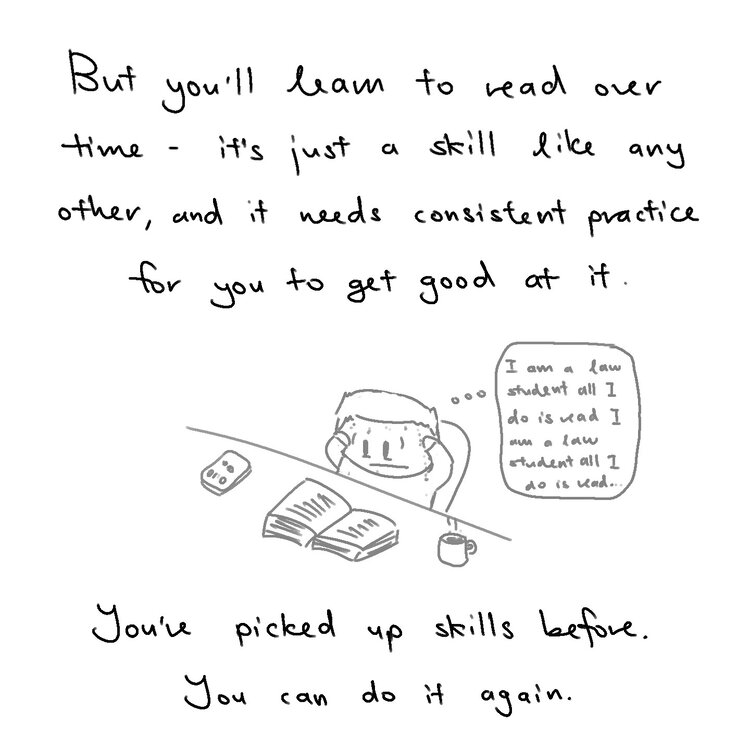 But you'll learn to read over
time - it's just a skill like any
other, and it needs consistent practice
for you to get good at it.
I am a law
student all I
do is read I
am a law
student all I
do is read...
You've picked up skills before.
You can do it again.